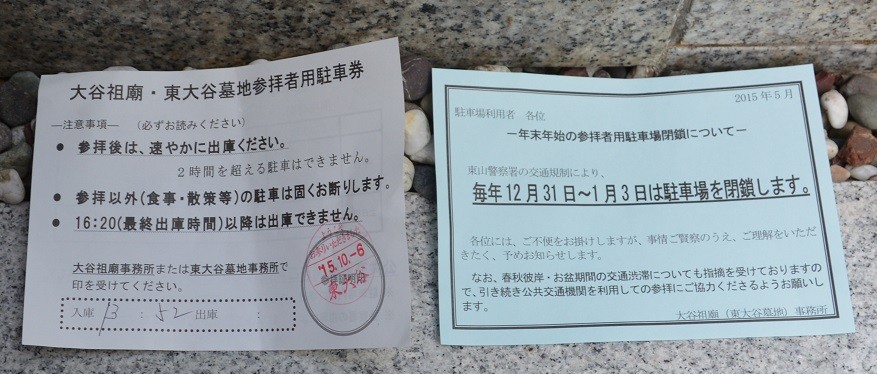 大谷祖廟・東大谷墓地参拝者用駐車券
―注意事項― (必ずお読みください)
● 参拝後は、速やかに出庫ください。
2時間を超える駐車はできません。
● 参拝以外(食事・散策等)の駐車は固くお断りします。
● 16:20(最終出庫時間)以降は出庫できません。
大谷祖廟事務所または東大谷墓地事務所で
印を受けてください。
入庫 13 : 52 出庫 :
'15.10.-6
2015年5月
駐車場利用者 各位
―年末年始の参拝者用駐車場閉鎖について―
東山警察署の交通規制により、
毎年12月31日~1月3日は駐車場を閉鎖します。
各位には、ご不便をお掛けしますが、事情ご賢察のうえ、ご理解をいただ
きたく、予めお知らせします。
なお、春秋彼岸・お盆期間の交通渋滞についても指摘を受けております
ので、引き続き公共交通機関を利用しての参拝にご協力くださるようお願いし
ます。
大谷祖廟(東大谷墓地)事務所